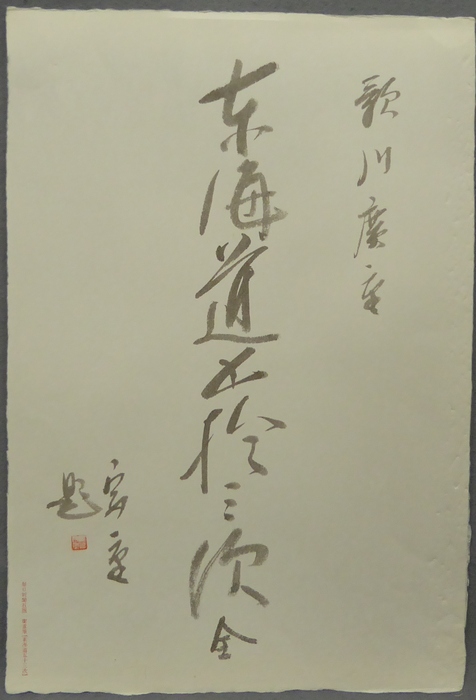 歌川廣重
東海道五拾三次全
宗重
題